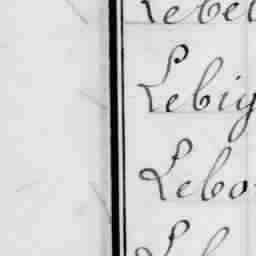 Lebel
Lebig
Lebo
Leb